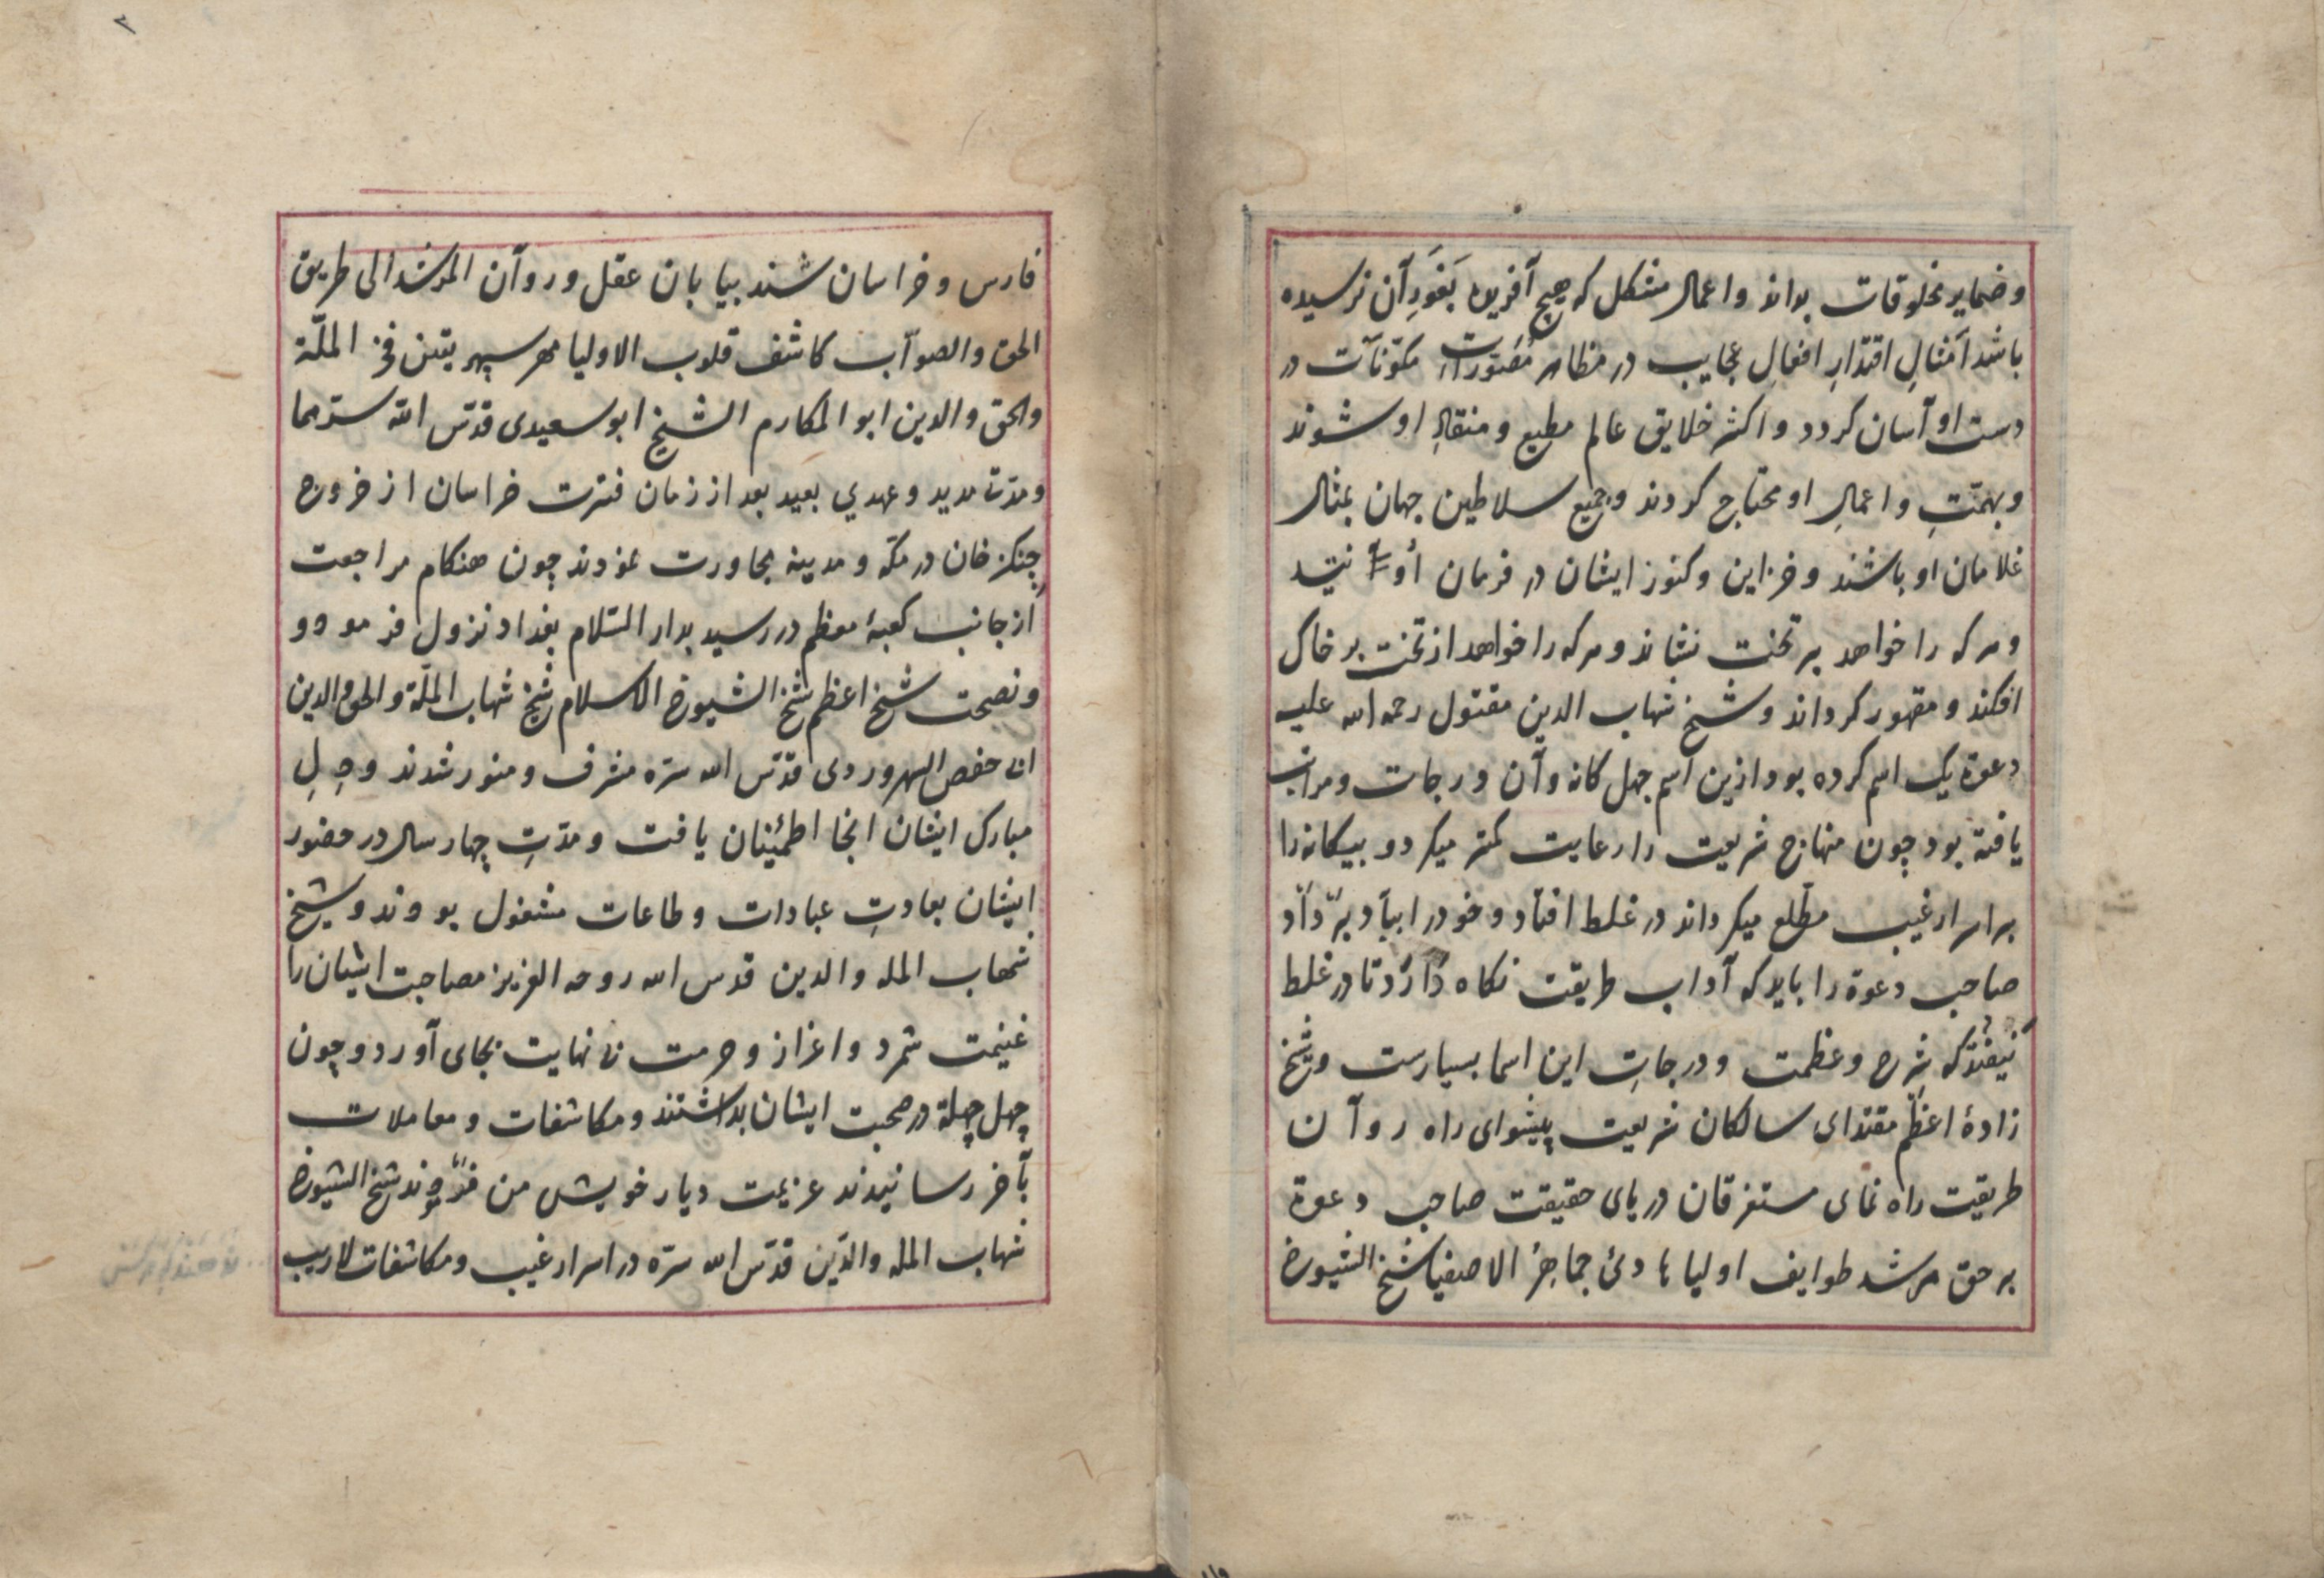 و ضمایر مخلوقات بداند و اعمال مشکل که هیچ آفریده بغورِ آن نرسیده
باشد اَمثالِ اقتدارِ افعالِ عجایب در مظاهر مصوّرات مکوّنآت در
دست او آسان کردد و اکثر خلایق عالم مطیع و منقادِ او شوند
و بهمّتِ و اعمالِ او محتاج کردند و جمیع سلاطین جهان بمثال
غلامان او باشند و خزاین و کنوز ایشان در فرمان اُو
و هرکه را خواهد بر تخت نشاند و هرکه را خواهد از تخت بر خاک
افکند و مقهور کرداند و شیخ شهاب الدین مقتول رحمه الله علیه
دعوة یک اسم کرده بود ازین اسم چهل کانه و آن درجات و مراتب
یافته بود چون منهاج شریعت را رعایت کمتر میکرد و بیکانه را
بر اسرار غیب مطّلع میکرداند در غلط افتاد و خود را بباد برّ دآد
صاحب دعوة را باید که آداب طریقت نکاه دَارَد تا در غلط
نیفتد که شرح و عظمت و درجاتِ این اسما بسیارست و شیخ
زادهٔ اعظم مقتدای سالکان شریعت پیشوای راه روآن
طریقیت راه نمای مستغرقان دریای حقیقت صاحب دعوة
بر حق مرشد طوایف اولیا هادئ جماهر الاصفیا شیخ الشیوخ
فارس و خراسان شند بیابان عقل و روآن المرشد الی طریق
الحق والصوآب کاشف قلوب الاولیا مهر سپهر یقین فخر الملّة
والحق والدین ابو المکارم الشیخ ابو سعیدی قدّس الله سرّهما
و مدّت مدید و عهدي بعید بعد از زمان فترت خراسان از خروج
چنکز خان در مکّه و مدینه مجاورت نمودند چون هنکام مراجعت
از جانب کعبهٔ معظم در رسید بدار السّلام بغداد نزول فرمود و
و نصیحت شیخ اعظم شیخ الشیوخ الاسلام شیخ شهاب الملّة والحق والدین
حفص السهروردی قدّس الله سرّه مشرف و منور شدند و
مبارک ایشان انجا اطمئینان یافت و مدّتِ چهار سال در حضور
ایشان بعادتِ عبادات و طاعات مشغول بودند و شیخ
شهاب المله والدین قدس الله روحه العزیز مصاحبت ایشان را
غنیمت شمرد و اعزاز و حرمت بی نهایت بجای آورد و چون
چهل چهلة در صحبت ایشان بداشتند و مکاشفات و معاملات
بآخر رسانیدند عزیمت دیار خویش من فرمودند شیخ الشیوخ
شهاب المله والدّین قدّس الله سرّه در اسرار غیب و مکاشفات لاریب